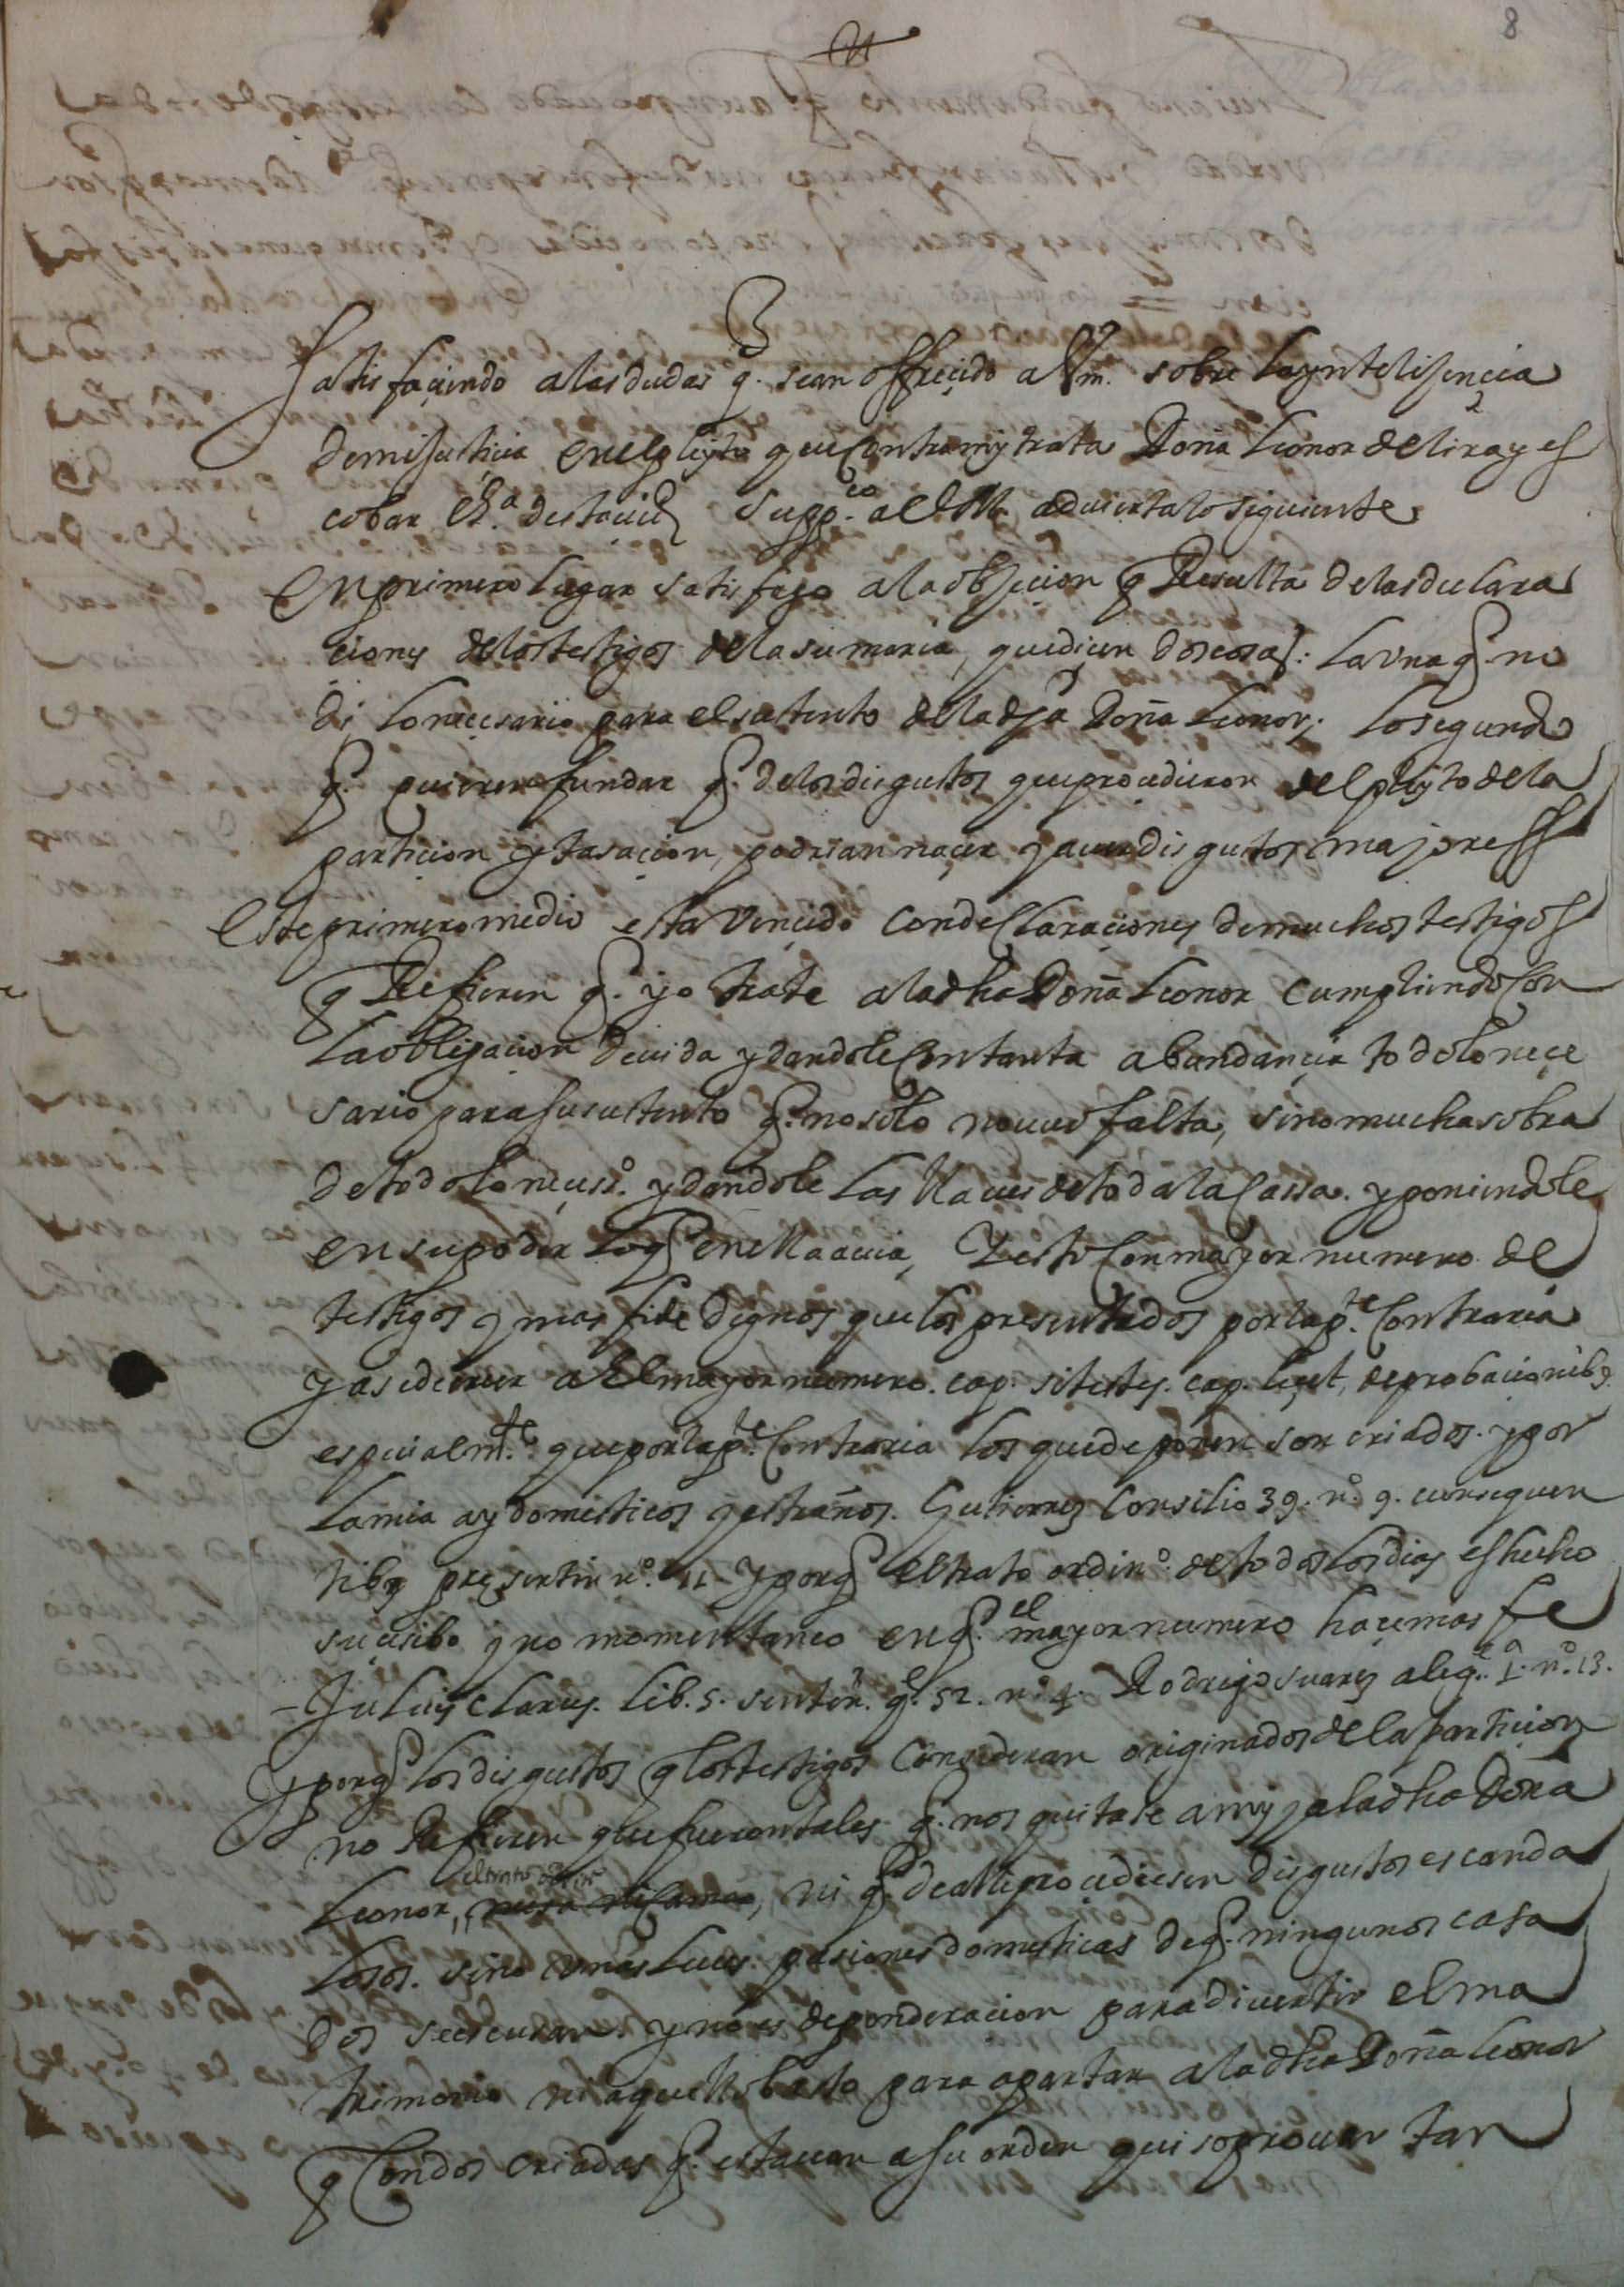 8
Satisfaciendo a las dudas q. se an offrecido a Vm. sobre la yntelisencia
de mi justicia en el pleyto que contra my trata Doña Leonor de lira y es
cobar vz.ª desta ciud supp.co a Vm. advierta lo siguiente
En primero lugar satisfago a la objecion q Resulta de las declara
ciones de los testigos de la sumaria, que diçen dos cosas: la vna q. no
di lo neçesario para el sustento de la dja Doña Leonor; lo segundo
q. quieren fundar q. de los disgustos que procedieron del pleyto de la
particion y tasaçion, podrian naçer y aver disgustos mayores
Este primero medio esta vençido con declaraçiones de muchos testigos
q Refieren q. yo trate a la dha Doña Leonor cumpliendo con
la obligaçion devida y dandole con tanta abundançia todo lo neçe
sario para su sustento q. no solo no uvo falta, sino mucha sobra
de todo lo neçess.o y dandole las llaves de toda la cassa. y poniendole
en su poder lo q en ella avia, Y esto con mayor numero de
testigos y mas fide dignos que los presentados por la p.te contraria
y as ede creer a El mayor numero. cap. si testes. cap. liçet, de probacionib9.
espeçialm.te que por la p.te contraria los que deponen son criados. y por
la mia ay domesticos y estraños. Gutierrez Consilio 39. n.o 9. cum sequen
tib9 presertin n.o 11. y porq el trato ordin.o de todos los dias es hecho
suçesibo y no momentaneo en q. el mayor numero haçe mas fe
- Julius Clarus. lib. 5. senten. q. 52. n.o 4. Rodrigo suarez aleg.e 1.a n.o 13.
y porq los disgustos q los testigos consideran originados de la particion
no Refieren que fueron tales q. nos quitase a my y a la dha Doña
Leonor, el trato ordin.o ni q. de alli procediesen disgustos escanda
losos. sino vnas leves pasiones domesticas de q. ningunos casa
dos se escusan. y no es de ponderacion para divertir el ma
trimonio ni aquello basto para apartar a la dha Doña Leonor
q Con dos criadas q. estavan a su orden quiso provar tan